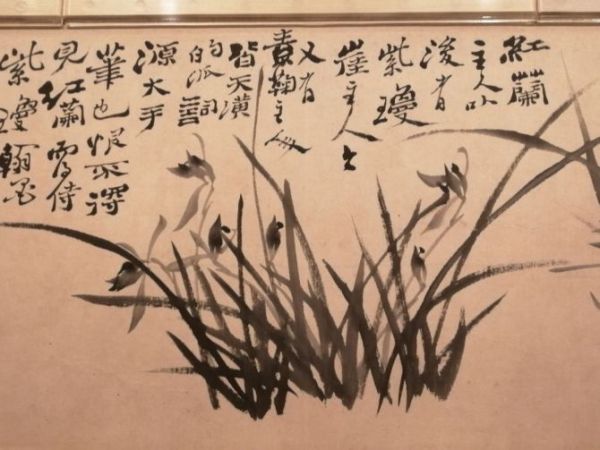 紅蘭
主人以
後有
紫瓊
崖主人
又有
素鞠主人
皆天潢
的派詞
源大手
筆也恨不得
見紅蘭而侍
紫瓊翰墨